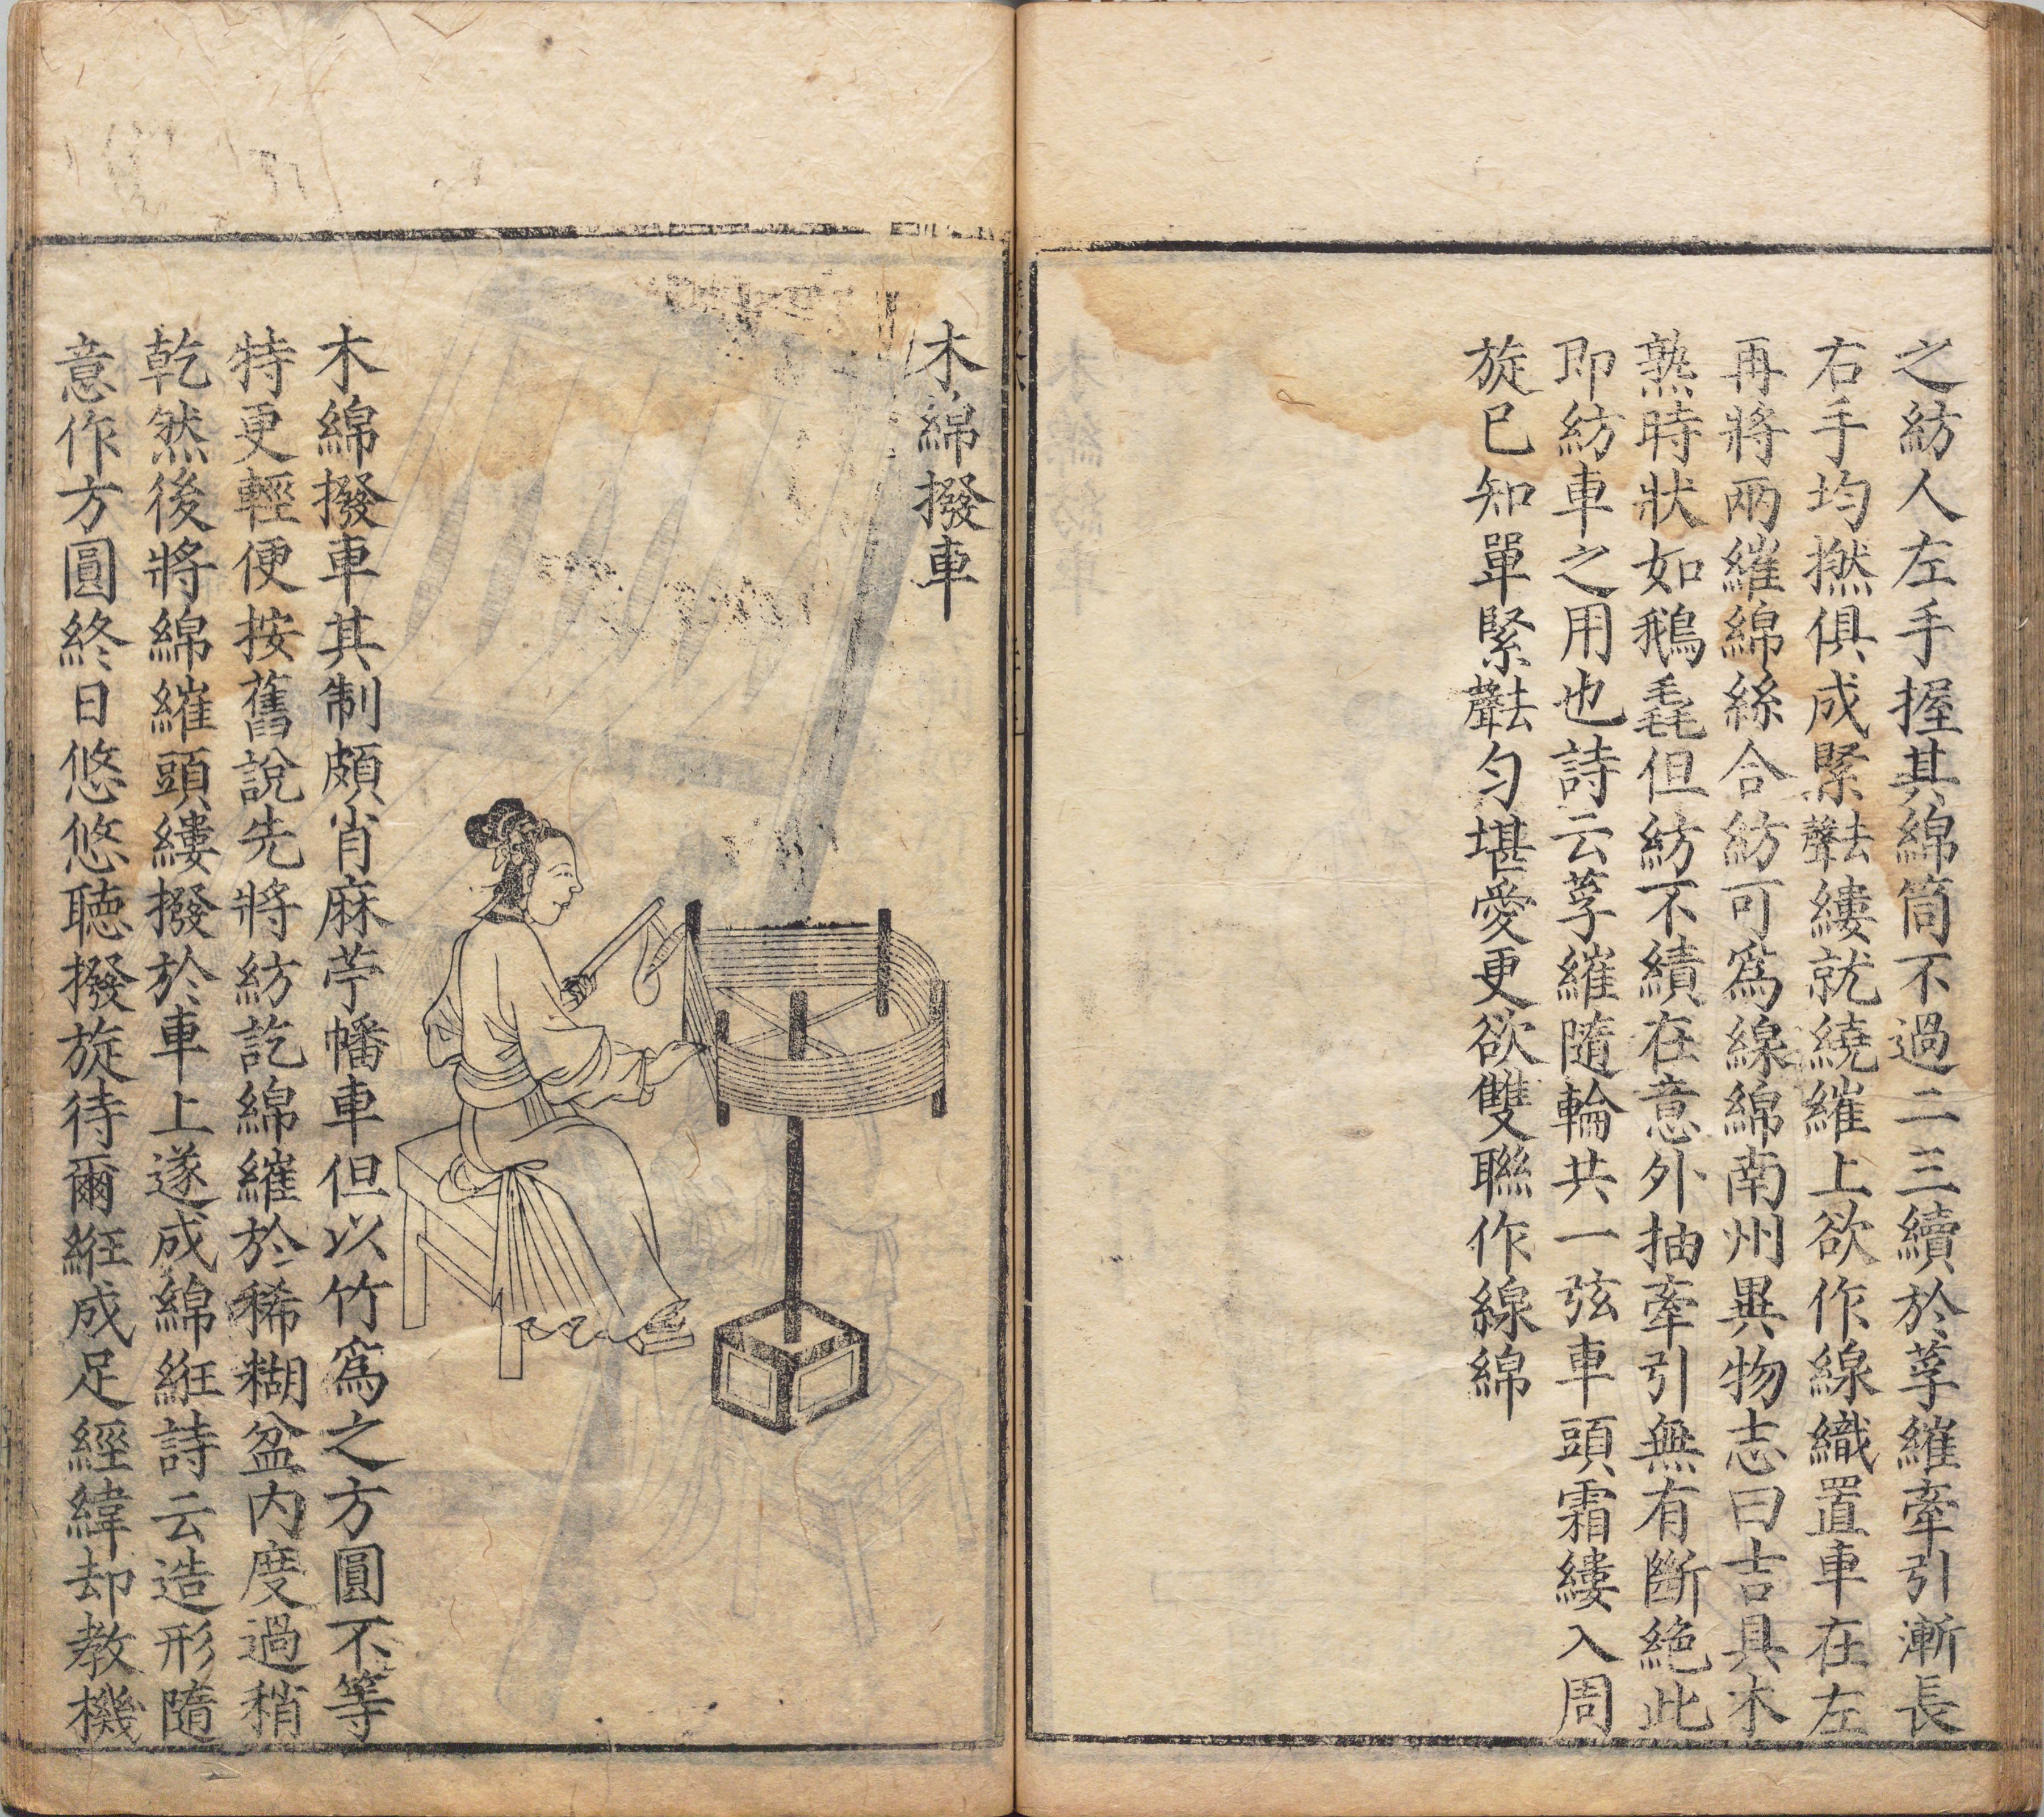 之紡人左手握其綿筒不過二三續於莩繀牽引漸長
右手均撚俱成緊𦆯縷就繞繀上欲作線織置車在左
再將兩繀綿絲合紡可爲線綿南州異物志曰吉具木
熟時狀如鵝毳但紡不績在意外抽牽引無有斷絶此
即紡車之用也詩云莩繀隨輪共一弦車頭霜縷入周
旋已知單緊勻堪愛更欲雙聯作線綿
木綿撥車
木綿撥車其制頗肖麻苧幡車但以竹爲之方圓不等
特更輕便按舊說先將紡訖綿繀於稀糊盆內度過稍
乾然後將綿繀頭縷撥於車上遂成綿絍詩云造形隨
意作方圓終日悠悠聽撥旋待爾絍成足經緯却教機